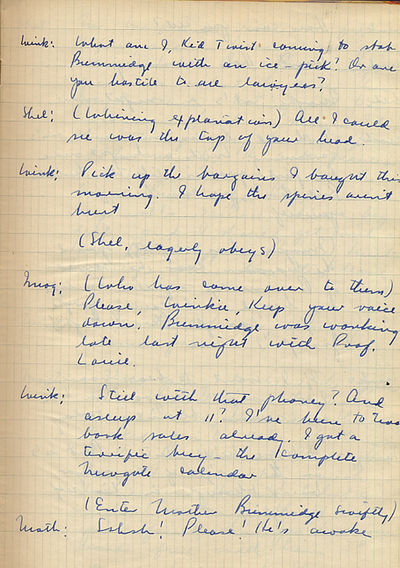 Wink: What am I, Kid Twist coming to stab
Bummidge with an ice-pick! Or are
you hostile to all lawyers?
Shel: (Whining explanations) All I could
see was the top of your head.
Wink: Pick up the bargains I bought this
morning. I hope the spines aren't
hurt
(Shel, eagerly obeys)
Imog: (Who has come over to them)
Please, Winkie, Keep your voice
down. Bummidge was working
late last night with Prof.
Louie.
Wink: Still with that phoney? And
asleep at 11? I've been to two
book sales already. I got a
terrific buy - the complete
Newgate calendar
(Enter Mother Bummidge swiftly)
Moth: Sshsh! Please! He's awake